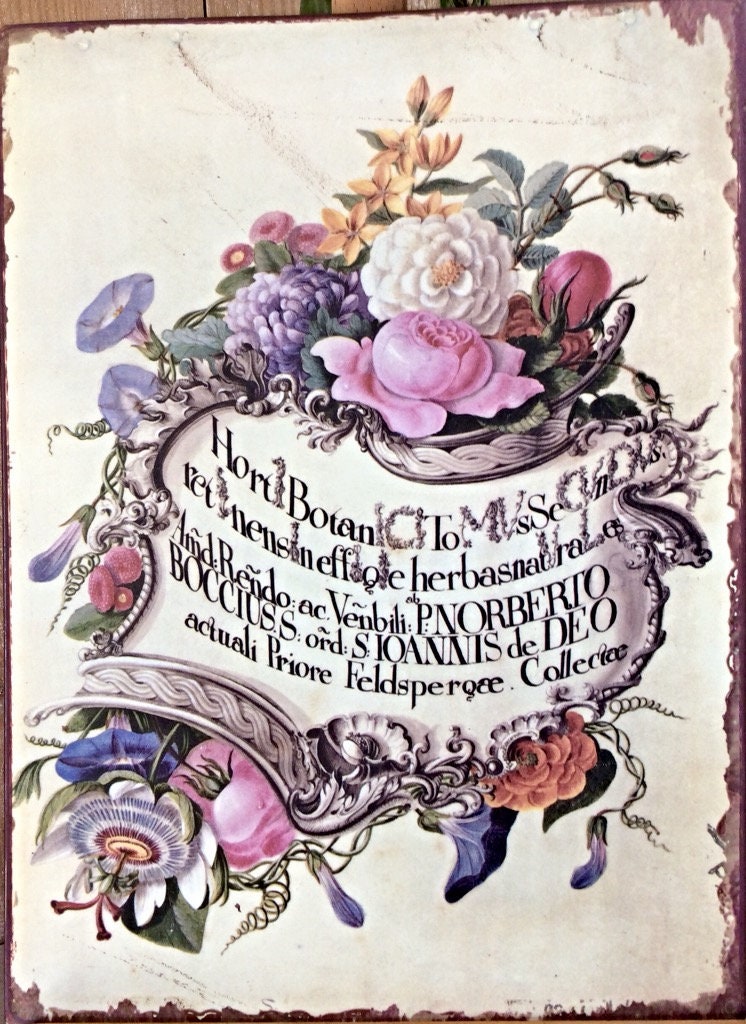 Horti BotanICI ToMVs SeCVnDVs.
retinens in effigie herbas natVraLes
Am̃d: Reñdo: ac. Veñbili: ab P. NORBERTO
BOCCIUS, S: or̃d: S: IOANNIS de DEO
actuali Priore Feldspergæ. Collectæ